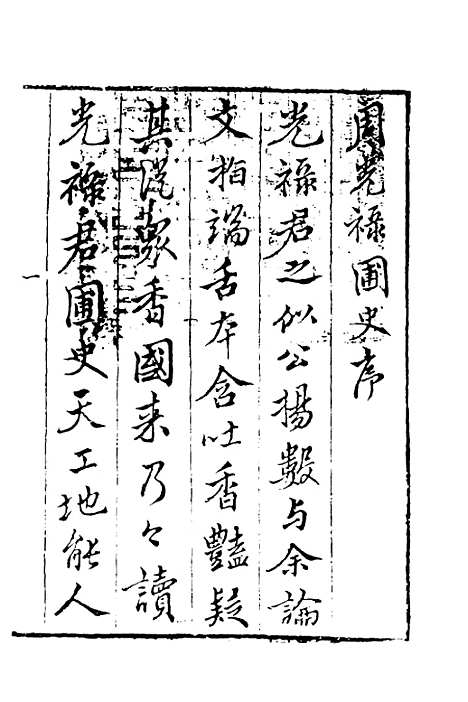 周光祿圃史序
光祿君之似公揚數与余論
文指端舌本含吐香艷疑
其從衆香國来乃今讀
光祿君圃史天工地能人